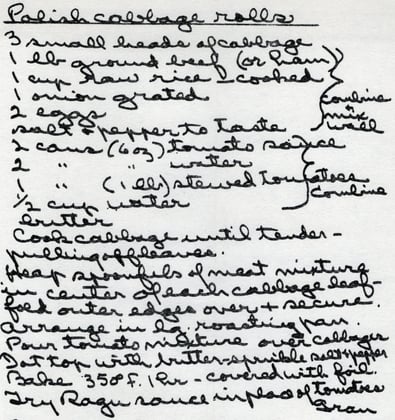 Polish cabbage rolls
3 small heads of cabbage
1 lb ground beef (or ham)
1 cup raw rice - cooked
1 onion grated
2 eggs
salt & pepper to taste
combine
& mix
well
2 cans (6 oz) tomato sauce
2 " " water
1 " (1 lb) stewed tomatoes
1/2 cup water
combine
butter
Cook cabbage until tender -
pulling off leaves.
Heap spoonfuls of meat mixture
in center of each cabbage leaf -
fold outer edges over & secure.
Arrange in lg. roasting pan.
Pour tomato mixture over cabbages
Dot top with butter - sprinkle salt & pepper
Bake 350° F. 1 hr - covered with foil.
Try Ragu sauce in place of tomatoes